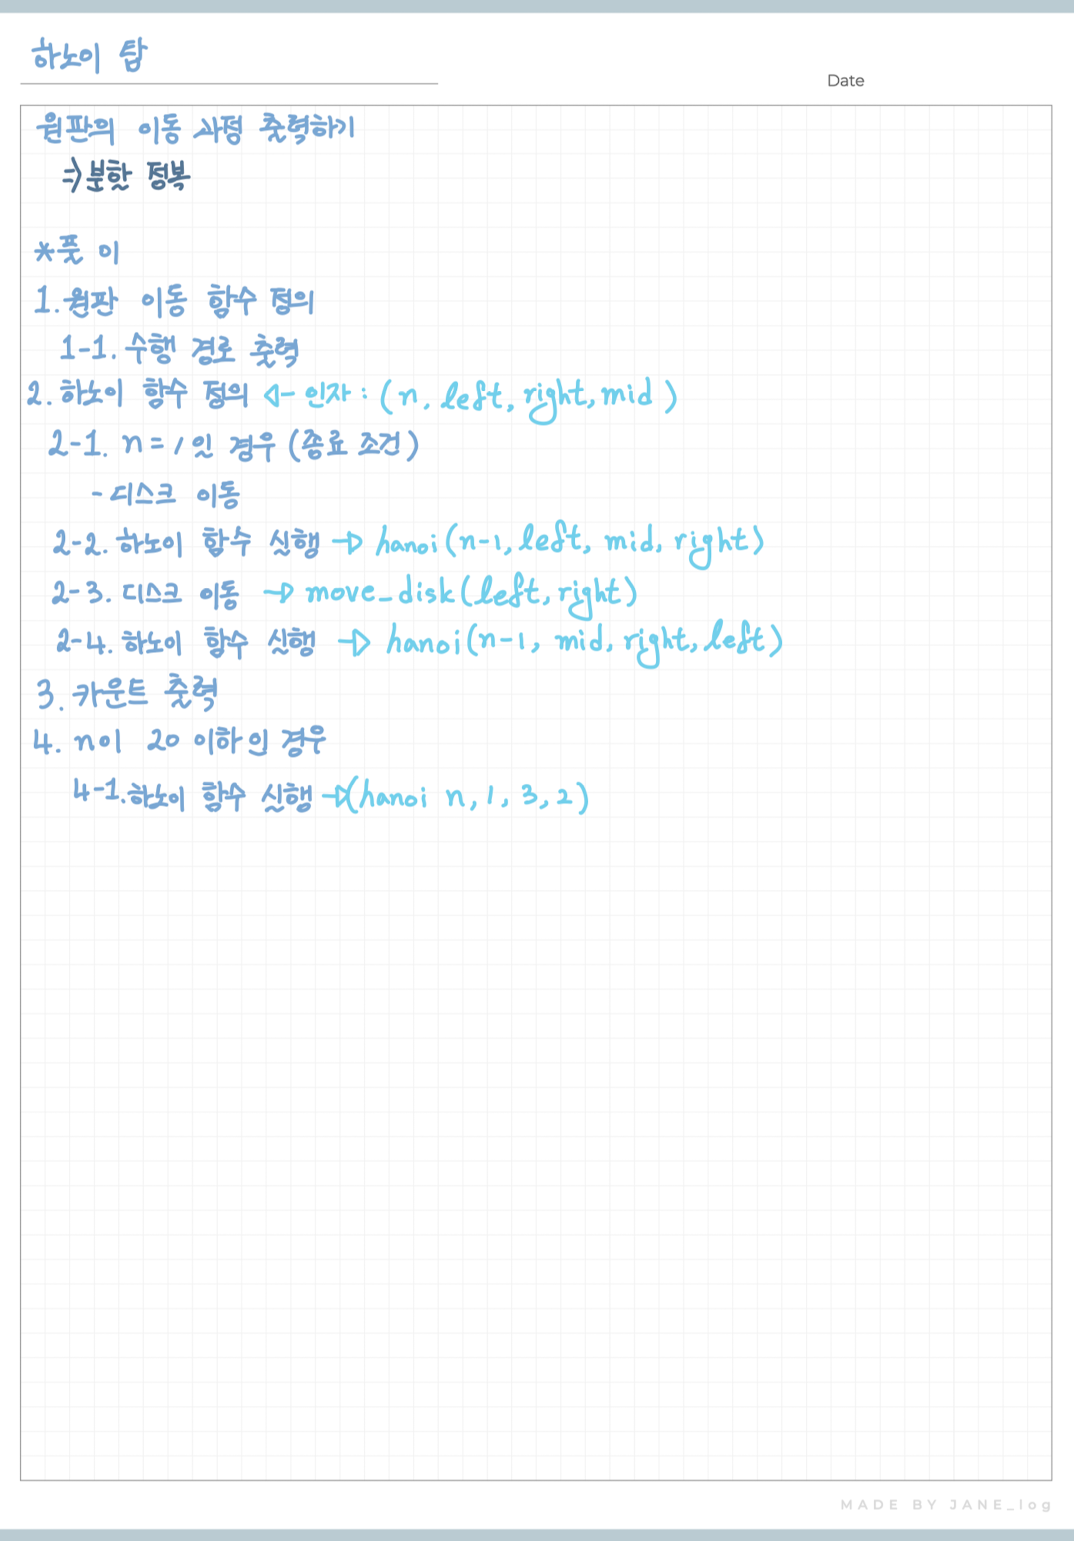 하노이 탑
Date
원판의 이동 과정 출력하기
⇒ 분할 정복
*풀이
1. 원판 이동 함수 정의
1-1. 수행 경로 출력
2. 하노이 함수 정의 ◁- 인자 : (n, left, right, mid)
2-1. n = 1 인 경우 (종료 조건)
- 디스크 이동
2-2. 하노이 함수 실행 -▷ hanoi(n-1, left, mid, right)
2-3. 디스크 이동 -▷ move_disk(left, right)
2-4. 하노이 함수 실행 -▷ hanoi(n-1, mid, right, left)
3. 카운트 출력
4. n이 20 이하인 경우
4-1. 하노이 함수 실행 -▷(hanoi n, 1, 3, 2)
MADE BY JANE_log